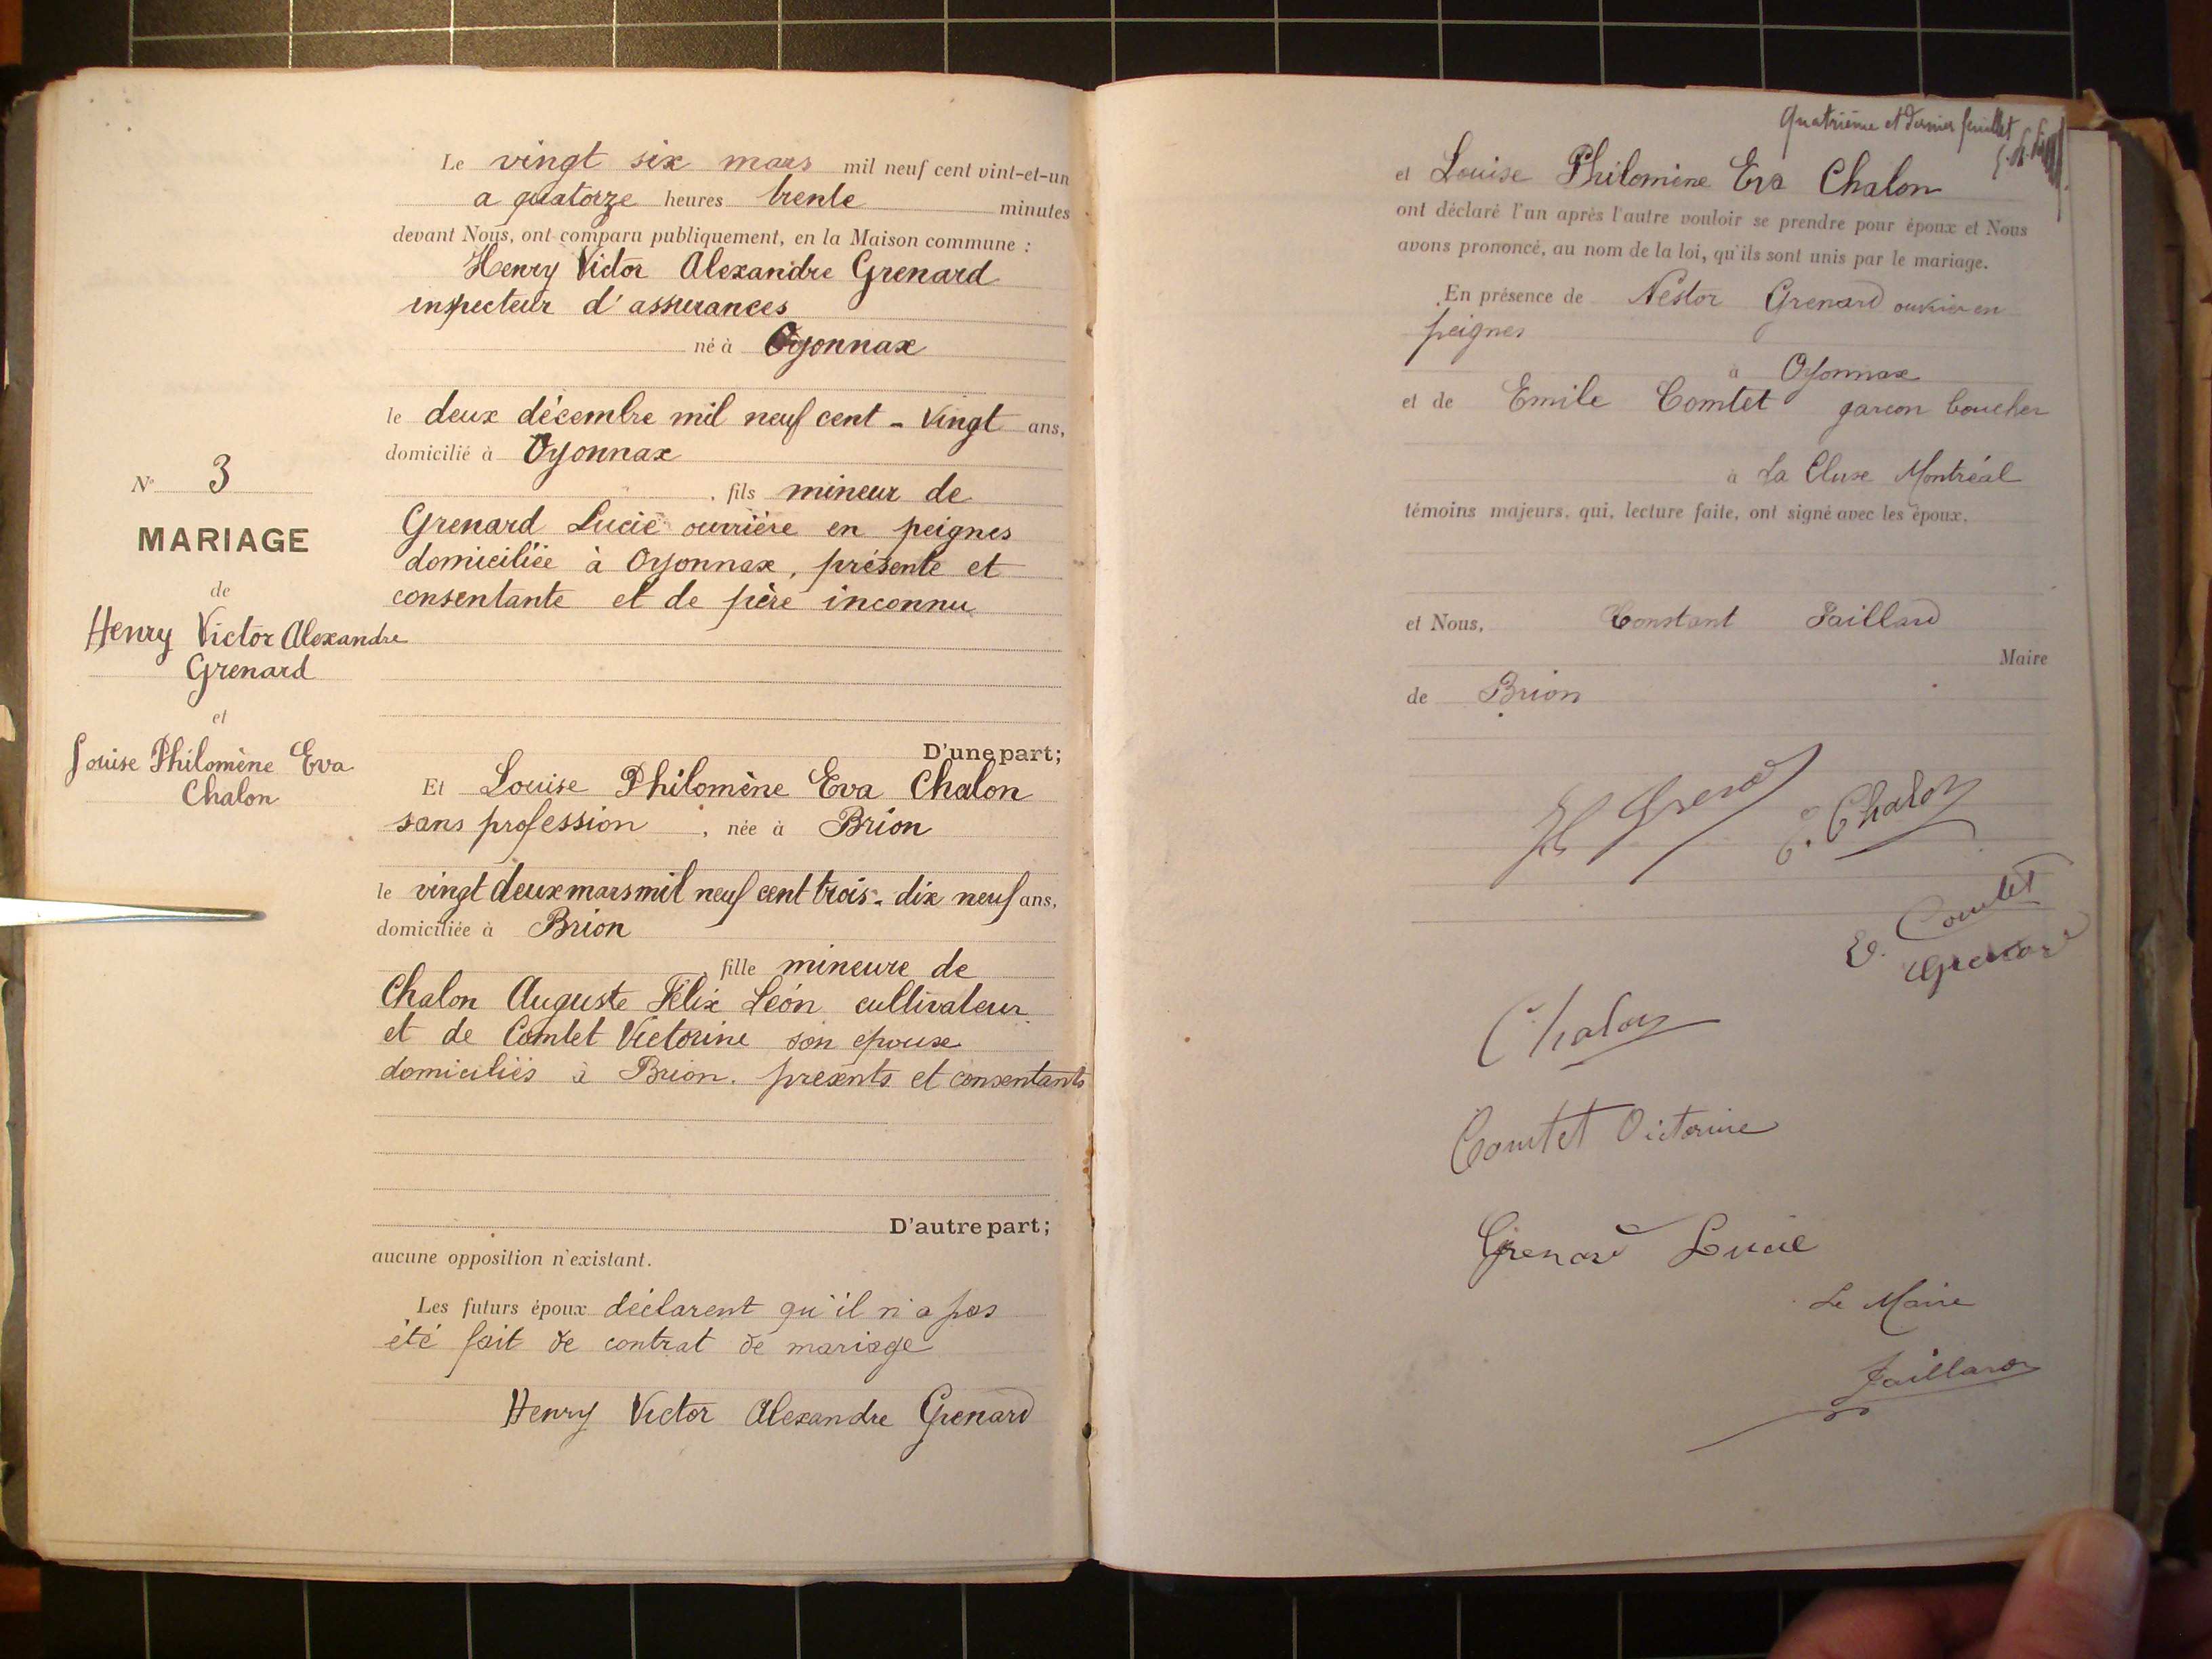 Le vingt six mars mil neuf cent vint-et-un
a quatorze heures trente minutes
devant Nous, ont comparu publiquement, en la Maison commune :
Henry Victor Alexandre Grenard
inspecteur d'assurances
né à Oyonnax
le deux décembre mil neuf cent - vingt ans,
domicilié à Oyonnax
, fils mineur de
Grenard Lucie ouvrière en peignes
domiciliée à Oyonnax, présente et
consentante et de père inconnu
D'une part;
Et Louise Philomène Eva Chalon
sans profession, née à Brion
le vingt deux mars mil neuf cent trois - dix neuf ans,
domiciliée à Brion
fille mineure de
Chalon Auguste Félix Léon cultivateur
et de Comtet Victorine son épouse
domiciliés à Brion. présents et consentants
D'autre part;
aucune opposition n'existant.
Les futurs époux déclarent qu'il n'a pas
été fait de contrat de mariage
Henry Victor Alexandre Grenard
N° 3
MARIAGE
de
Henry Victor Alexandre
Grenard
et
Louise Philomène Eva
Chalon
Quatrième et dernier feuillet
et Louise Philomène Eva Chalon
ont déclaré l'un après l'autre vouloir se prendre pour époux et Nous
avons prononcé, au nom de la loi, qu'ils sont unis par le mariage.
En présence de Nestor Grenard ouvrier en
peignes
à Oyonnax
et de Emile Comtet garçon boucher
à La Cluse Montréal
témoins majeurs, qui, lecture faite, ont signé avec les époux,
et Nous, Constant Jaillard
Maire
de Brion
H Grenard
E. Chalon
E. Comtet
Grenard
Chalon
Comtet Victorine
Grenard Lucie
Le Maire
Jaillard